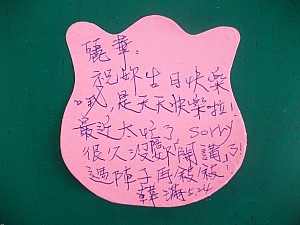 麗華:
祝妳生日快樂
或是天天快樂啦!
最近太忙了 sorry
很久沒聽妳開講了!
過陣子再敘敘!
5.24